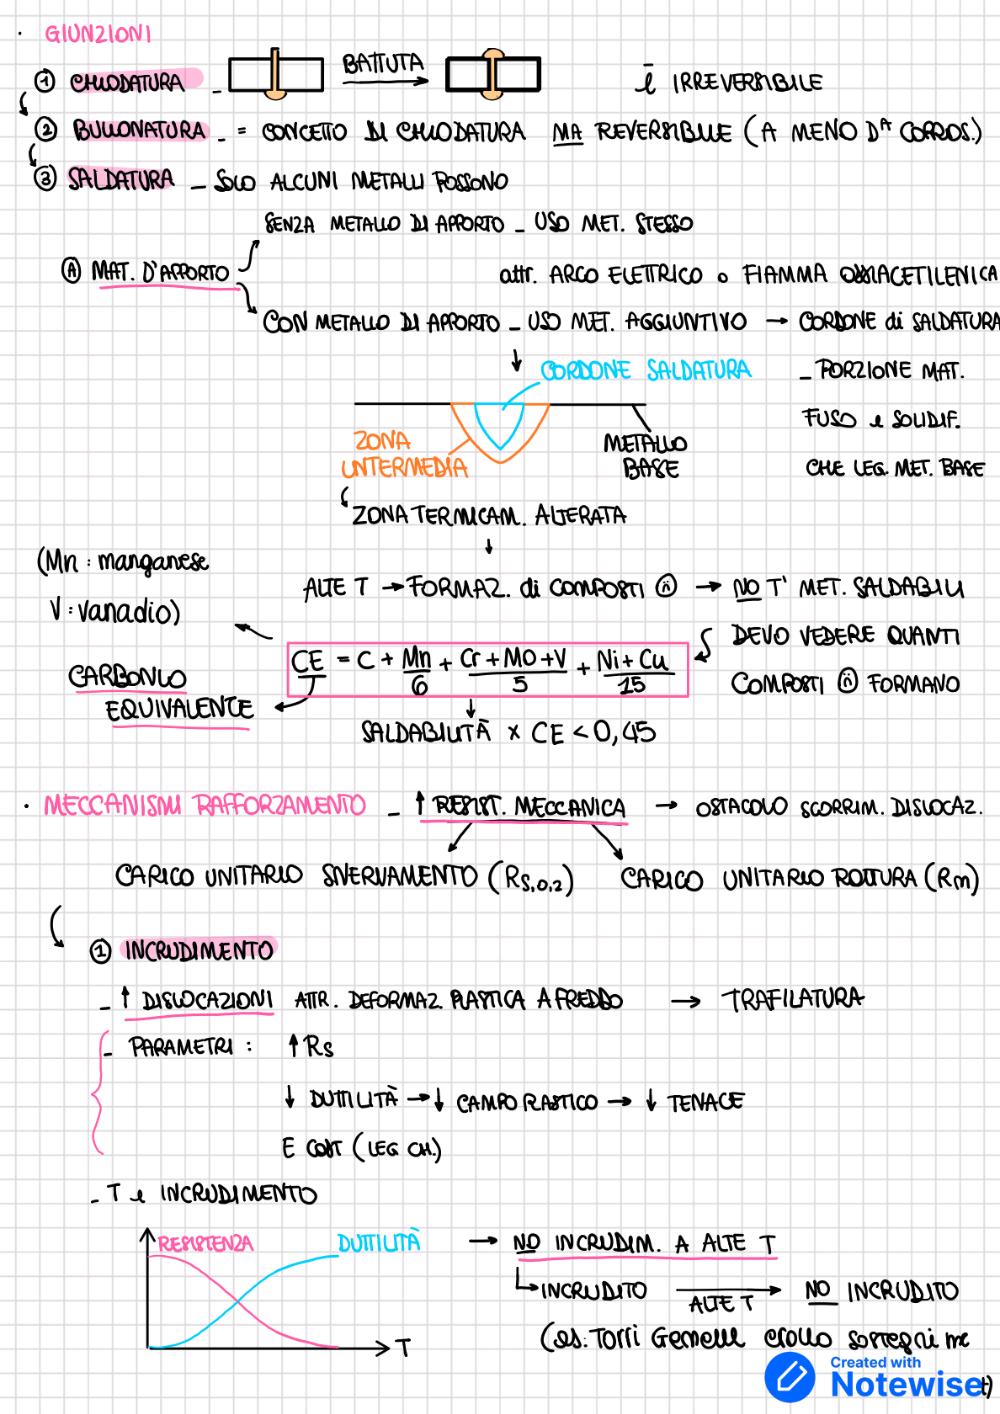 · GIUNZIONI
① CHIODATURA - BATTUTA è IRREVERSIBILE
② BULLONATURA - = CONCETTO DI CHIODATURA MA REVERSIBILE (A MENO Dᴬ CORROS.)
③ SALDATURA - SOLO ALCUNI METALLI POSSONO
SENZA METALLO DI APPORTO - USO MET. STESSO
Ⓐ MAT. D'APPORTO
attr. ARCO ELETTRICO o FIAMMA OSSIACETILENICA
CON METALLO DI APPORTO - USO MET. AGGIUNTIVO → CORDONE di SALDATURA
↓ CORDONE SALDATURA - PORZIONE MAT.
FUSO e SOLIDIF.
ZONA INTERMEDIA
METALLO BASE
CHE LEG. MET. BASE
ZONA TERMICAM. ALTERATA
↓
(Mn : manganese
ALTE T → FORMAZ. di COMPOSTI ⓝ → NO T' MET. SALDABILI
V : vanadio)
DEVO VEDERE QUANTI
CE = C + Mn/6 + Cr + MO + V/5 + Ni + Cu/15
CARBONIO
COMPOSTI ⓝ FORMANO
EQUIVALENTE
↓
SALDABILITÀ x CE < 0,45
· MECCANISMI RAFFORZAMENTO - ↑ RESIST. MECCANICA → OSTACOLO SCORRIM. DISLOCAZ.
CARICO UNITARIO SNERVAMENTO (Rs,0,2) CARICO UNITARIO ROTTURA (Rm)
① INCRUDIMENTO
- ↑ DISLOCAZIONI ATTR. DEFORMAZ. PLASTICA A FREDDO → TRAFILATURA
- PARAMETRI : ↑ Rs
↓ DUTTILITÀ → ↓ CAMPO PLASTICO → ↓ TENACE
E COST (LEG CH.)
- T e INCRUDIMENTO
RESISTENZA DUTTILITÀ → NO INCRUDIM. A ALTE T
INCRUDITO ALTE T → NO INCRUDITO
T
(es: Torri Gemelle crollo sostegni me
t)
Created with
Notewise